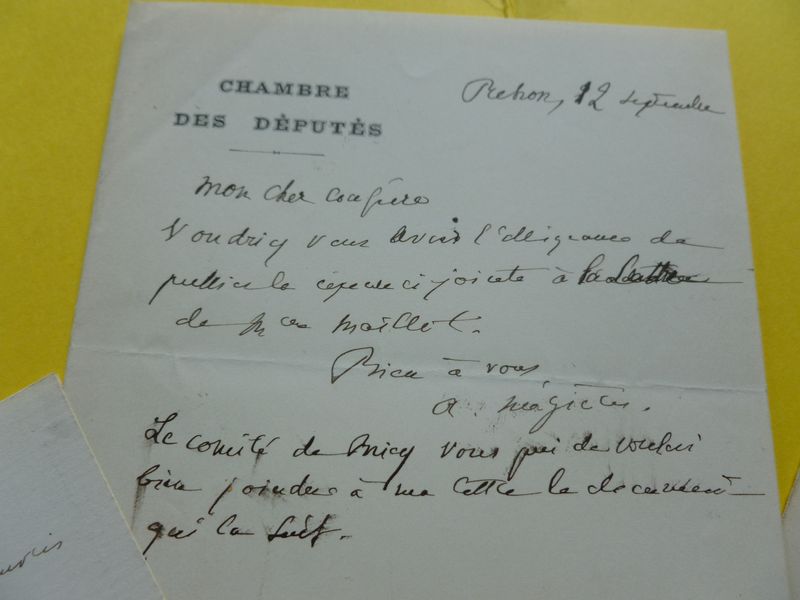 CHAMBRE
DES DÉPUTÉS
Rehon, 12 septembre
mon cher confrère
Voudriez vous avoir l'obligeance de
publier la réponse ci jointe à la lettre
de Mr Maillot.
Bien à vous
A. Mézières.
Le comité de Briey vous prie de vouloir
bien joindre à ma lettre le document
qui la suit.